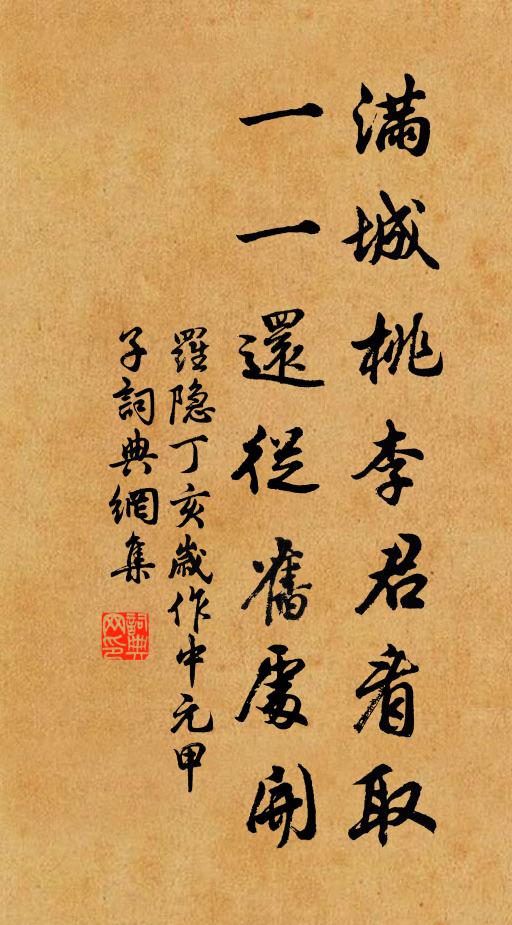 滿城桃李君看取
一一還從舊處開
羅隐丁亥歲作中元甲
子詞典網集
詞典网印